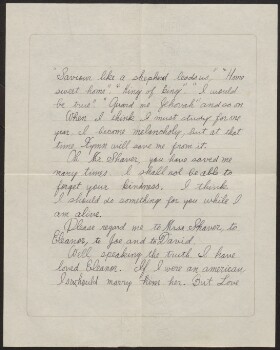 "Saviour like a shepherd lead us", "Home
sweet home", "King of King", "I would
be true" "Guard me Jehovah" and so on
When I think I must study for one
year I become melancholy but at that
time Hymn will save me from it.
Oh Mr Shaver you have saved me
many times. I shall not be able to
forget your kindness. I think
I should do something for you while I
am alive.
Please regard me to Mrs Shaver, to
Eleanor, to Joe and to David.
Well speaking the truth I have
loved Eleanor. If I were an american
I should marry her. But Love